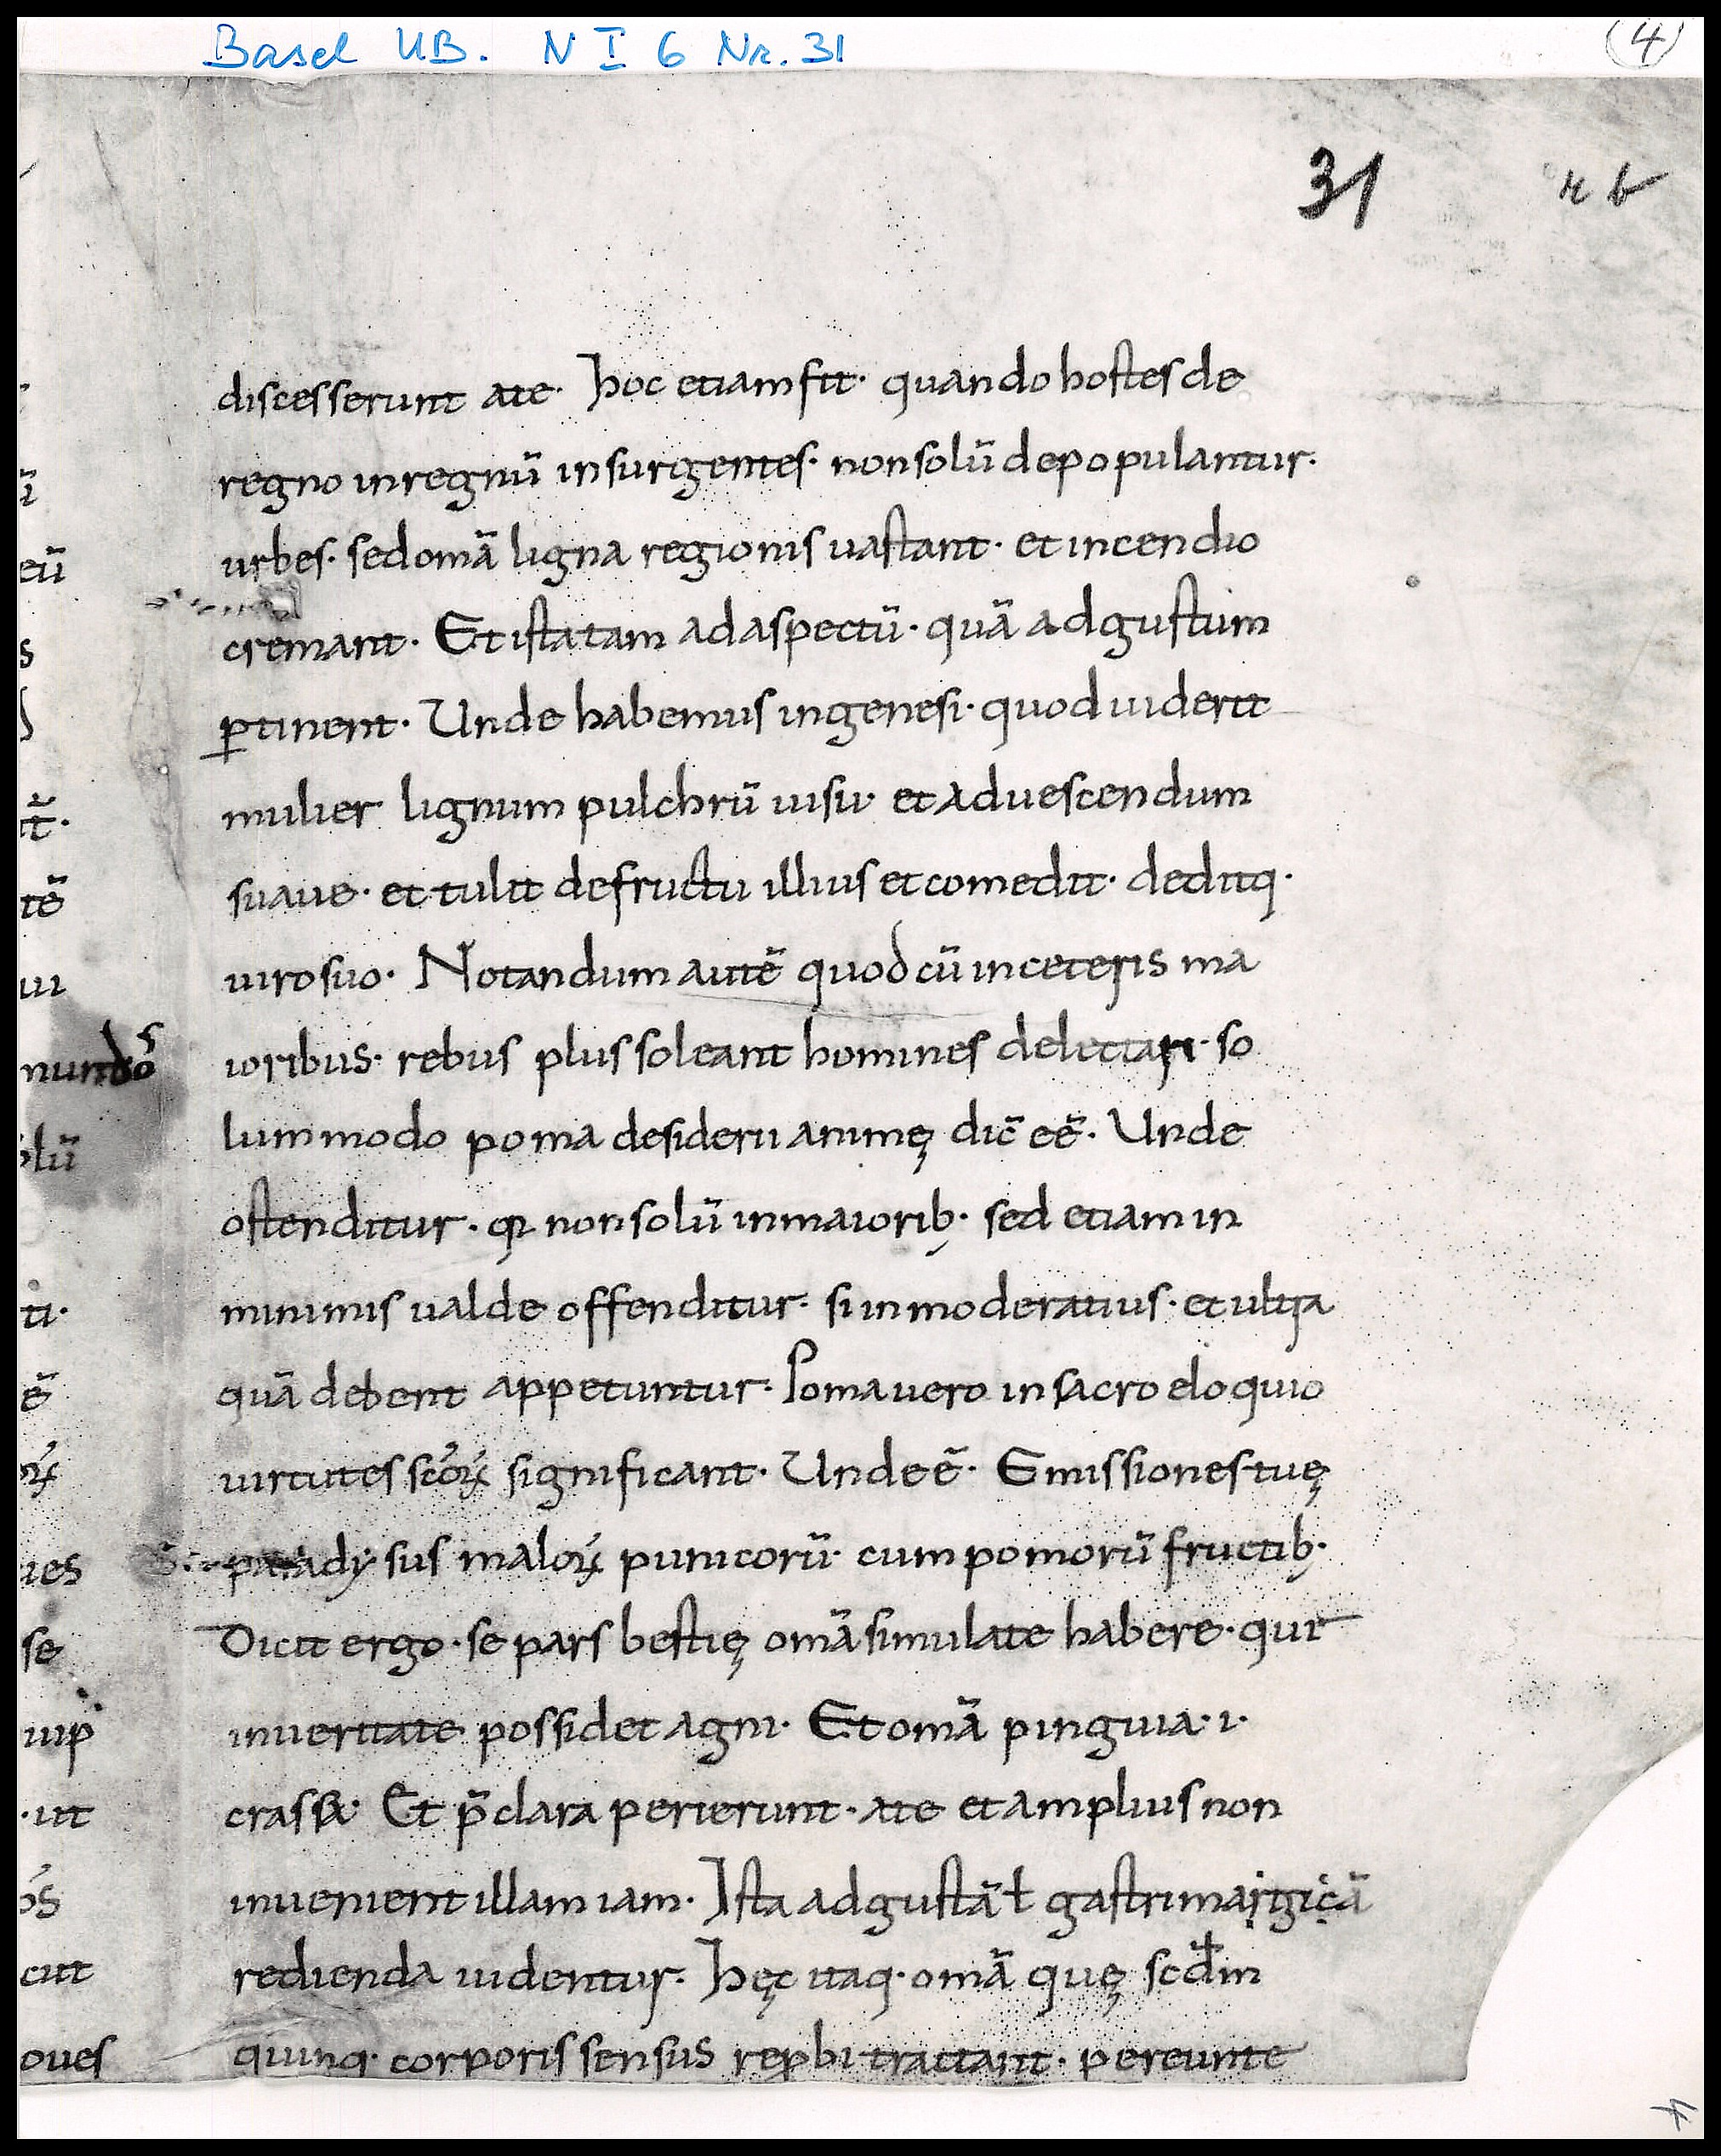 Basel UB. N I 6 Nr. 31
(4)
31
discesserunt ate· hoc etiam fit· quando hostes de
regno in regnū insurgentes· non solū depopulantur·
urbes· sed omā ligna regionis uastant· et incendio
cremant· Et ista tam ad aspectū· quā ad gustum
ꝑtinent· Unde habemus in genesi· quod uiderit
mulier lignum pulchrū uisu· et ad uescendum
suaue· et tulit de fructu illius et comedit· deditq·
uiro suo· Notandum autē quod cū in ceteris ma
ioribus· rebus plus soleant homines delectari· so
lummodo poma desiderii animę dic̄ eē· Unde
ostenditur· qꝛ non solū in maiorib· sed etiam in
minimis ualde offenditur· si inmoderatius· et ultra
quā debent appetuntur· Poma uero in sacro eloquio
uirtutes sc̄oꝝ significant· Unde ē· Emissiones tuę
paradysus maloꝝ punicorū· cum pomorū fructib·
Dicit ergo· se pars bestię omā simulate habere· qui
in ueritate possidet agni· Et omā pinguia· i·
crassa· Et p̄clara perierunt· ate et amplius non
inuenient illam iam· Ista ad gustā ł gastrimargicā
redienda uidentur· Hęc itaq· omā quę scđm
quinq· corporis sensus reꝓbi tractant· pereunte
eū
s
tē
ui
mundōs
lū
ti·
ē
oꝝ
ies
se
uip
·ut
os
cut
oues